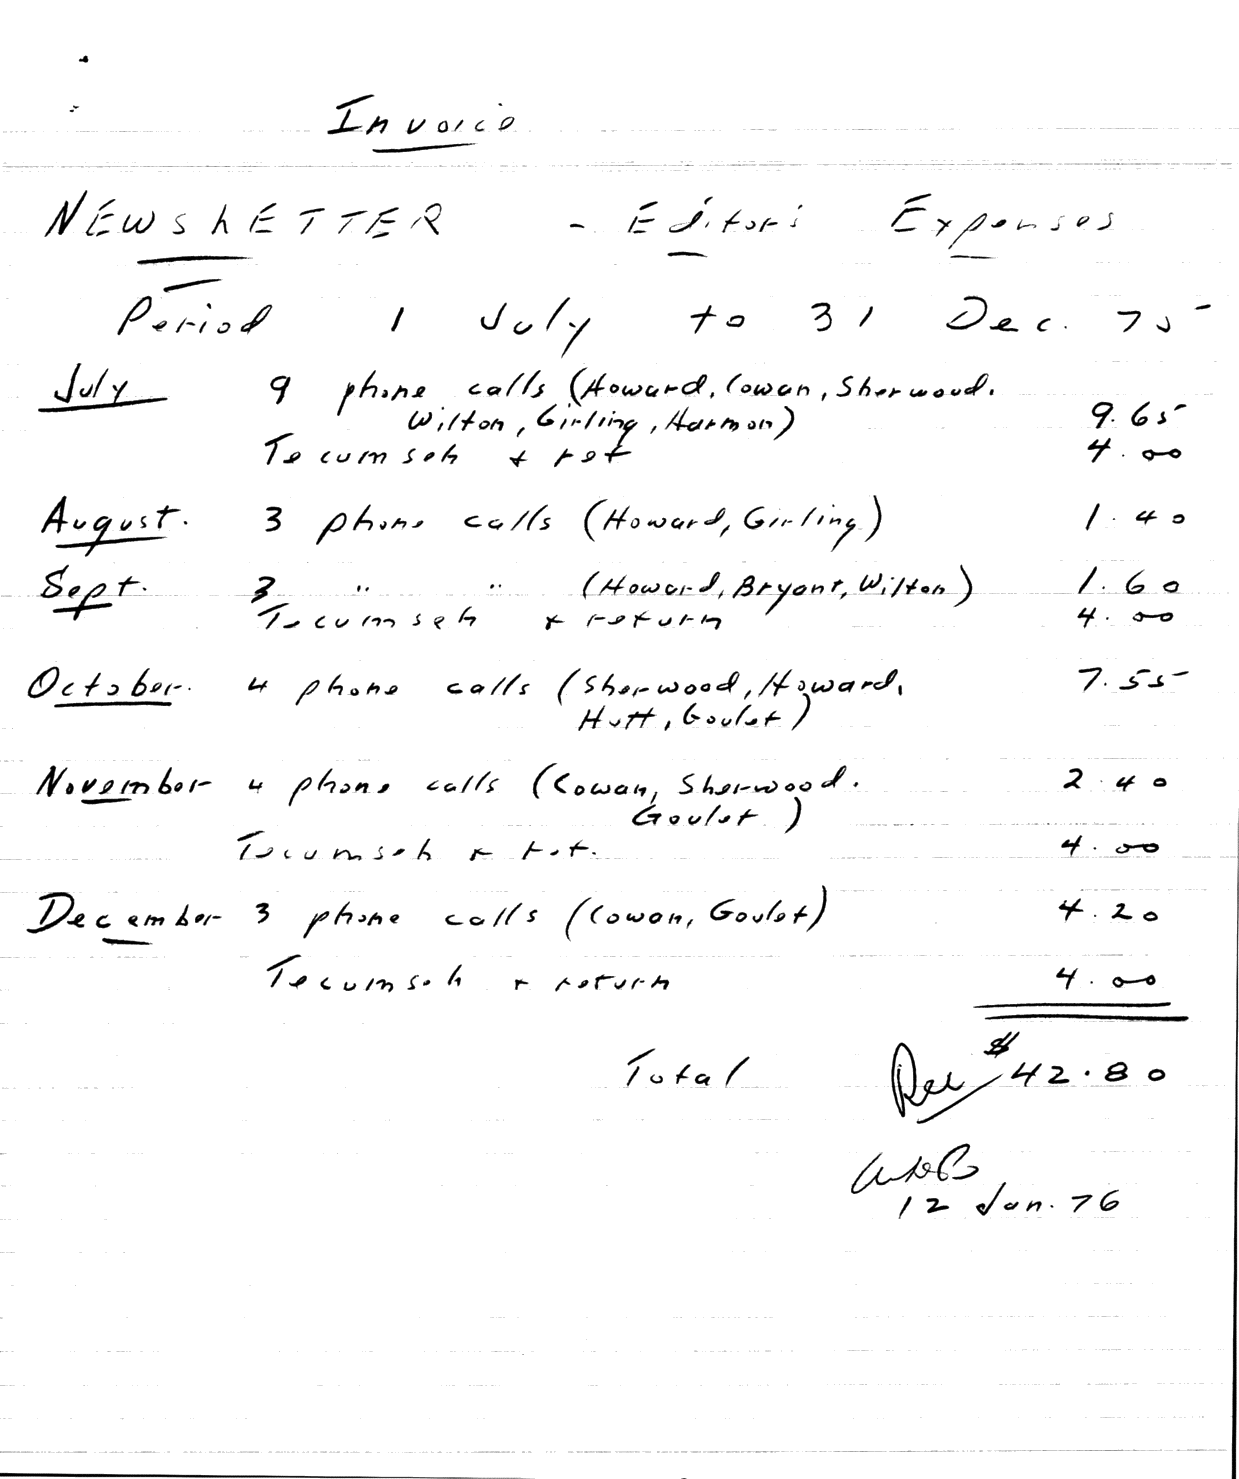 Invoice
NEWSLETTER - Editor's Expenses
Period 1 July to 31 Dec. 75
July 9 phone calls (Howard, Cowan, Sherwood.
Wilton, Girling, Harmon) 9.65
Tecumseh + ret 4.00
August. 3 phone calls (Howard, Girling) 1.40
Sept. 3 " " (Howard, Bryant, Wilton) 1.60
Tecumseh + return 4.00
October. 4 phone calls (Sherwood, Howard, 7.55
Hutt, Goulet)
November 4 phone calls (Cowan, Sherwood. 2.40
Goulet)
Tecumseh + ret. 4.00
December 3 phone calls (Cowan, Goulet) 4.20
Tecumseh + return 4.00
Total $42.80
12 Jan. 76